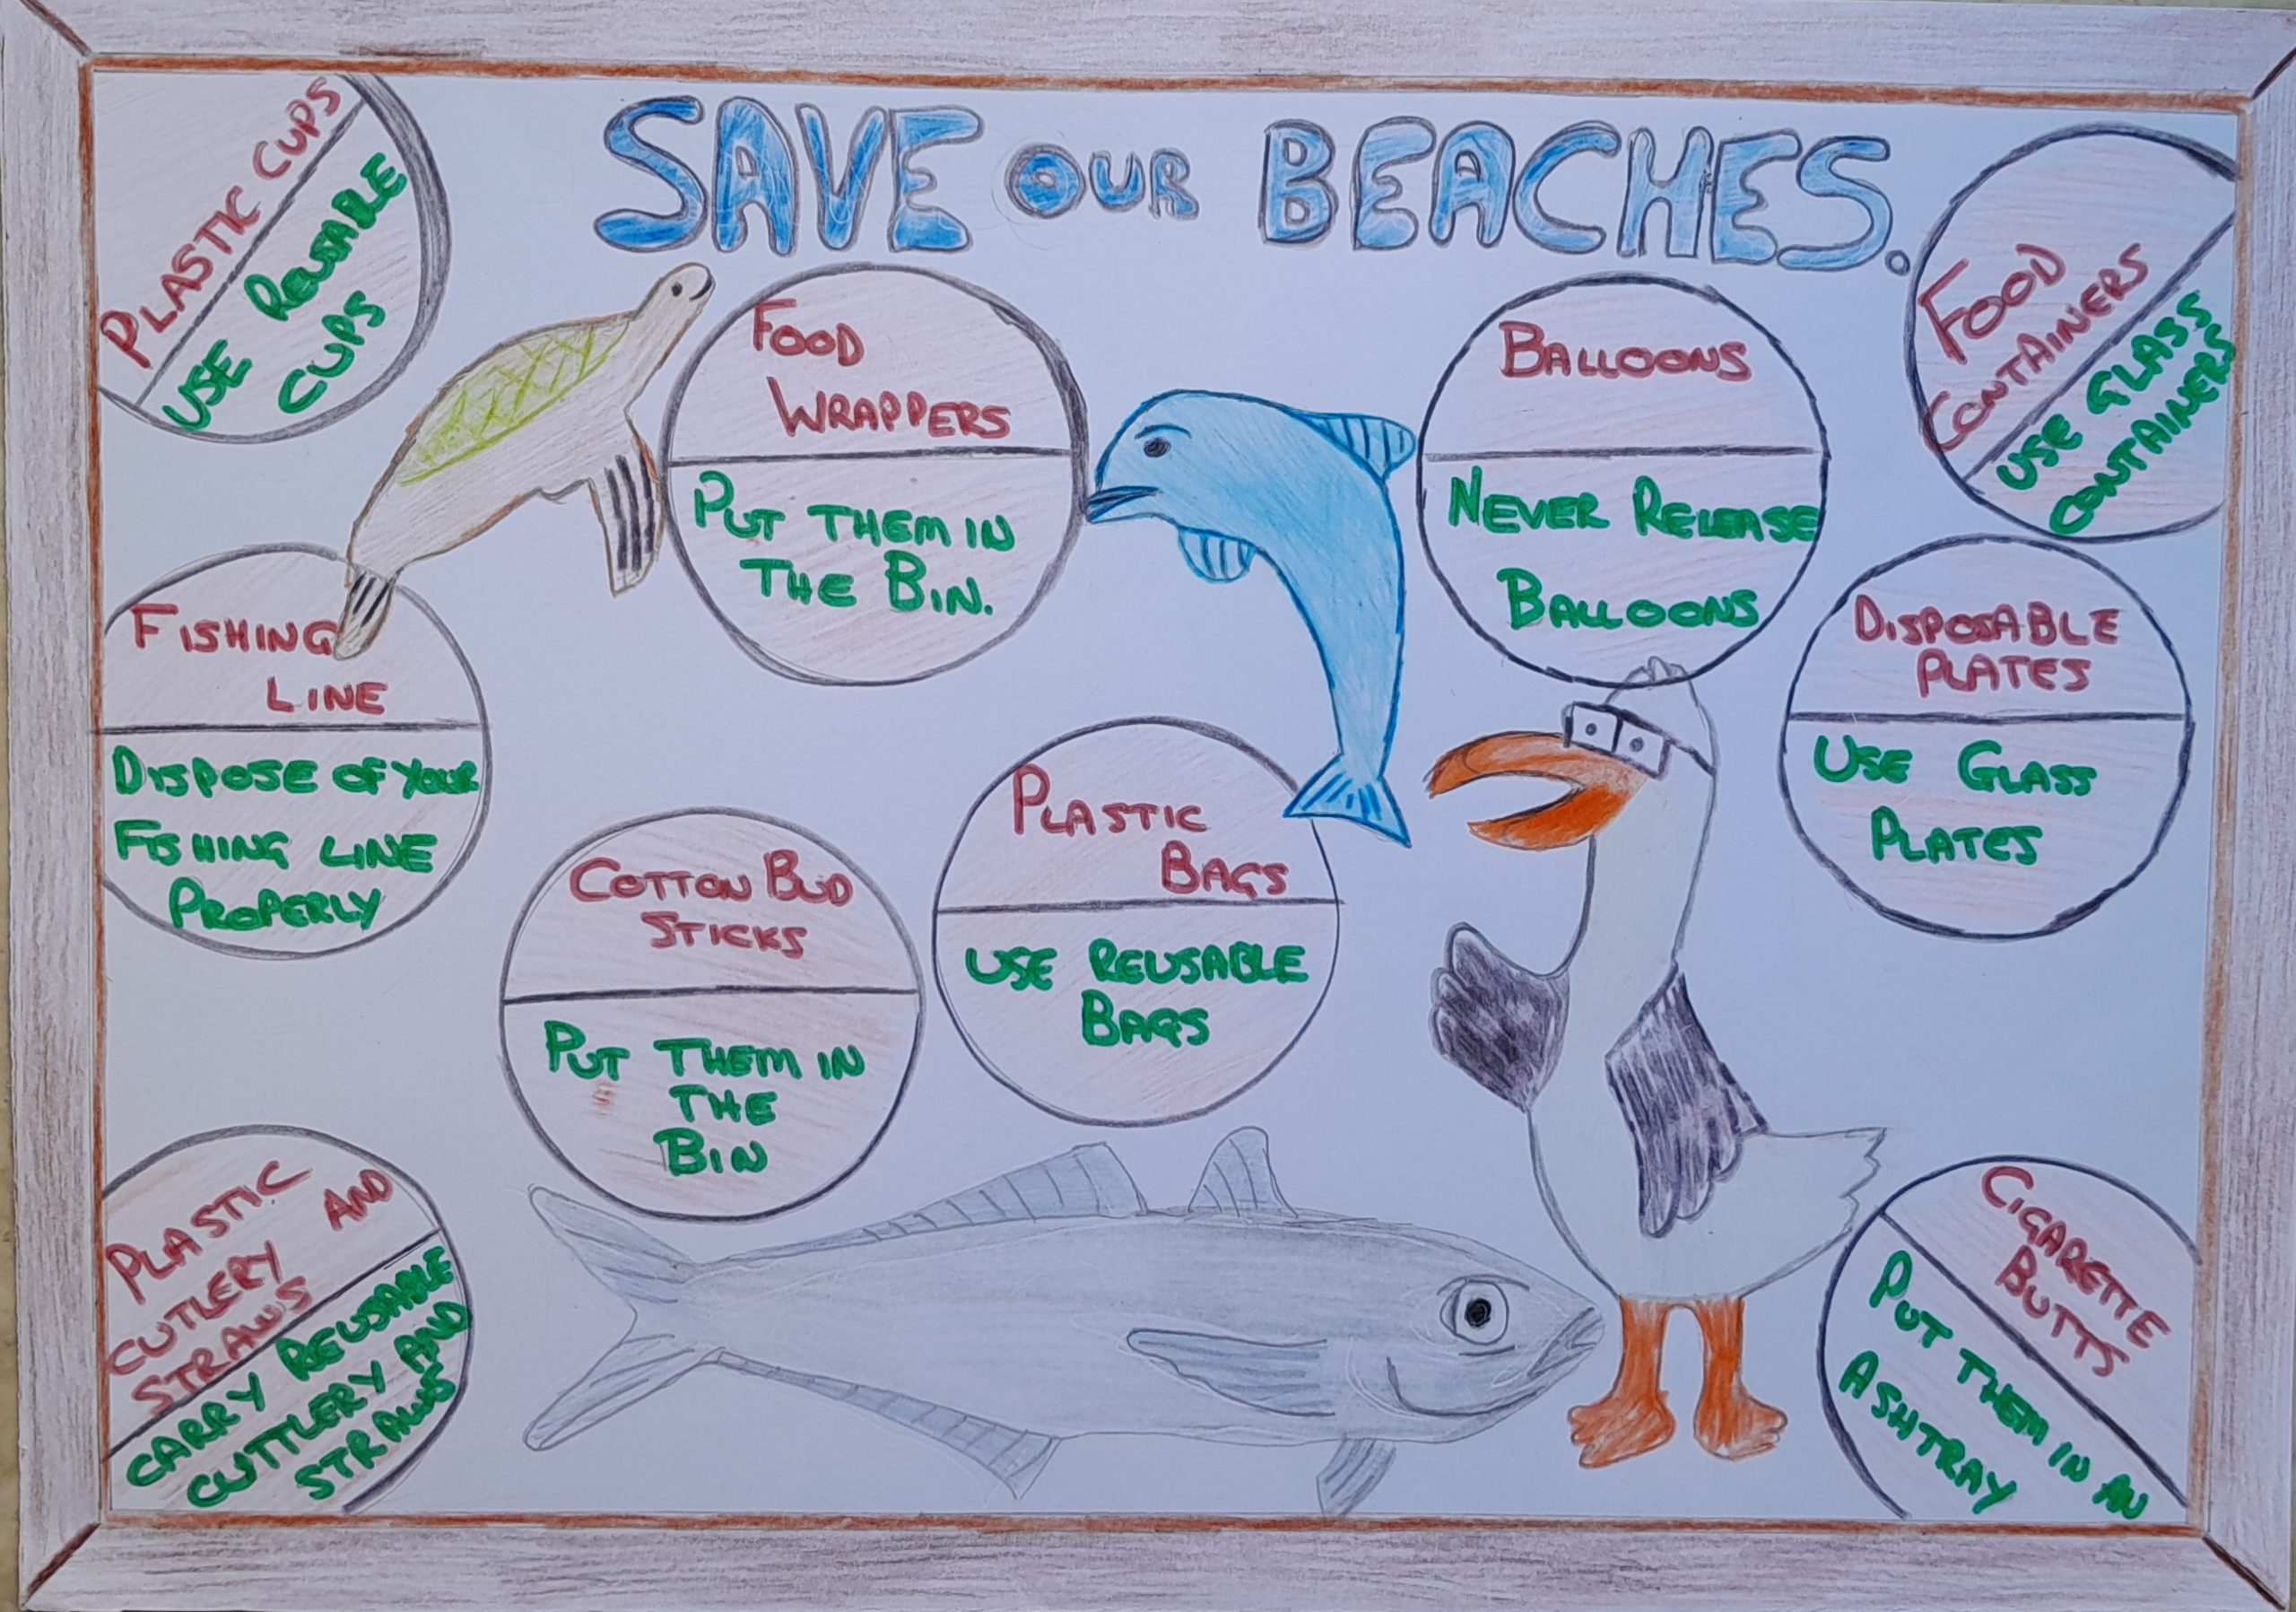 SAVE OUR BEACHES.
PLASTIC CUPS
USE REUSABLE
CUPS
FOOD
WRAPPERS
PUT THEM IN
THE BIN.
BALLOONS
NEVER RELEASE
BALLOONS
FOOD
CONTAINERS
USE GLASS
CONTAINERS
FISHING
LINE
DISPOSE OF YOUR
FISHING LINE
PROPERLY
DISPOSABLE
PLATES
USE GLASS
PLATES
PLASTIC
BAGS
USE REUSABLE
BAGS
COTTON BUD
STICKS
PUT THEM IN
THE
BIN
PLASTIC AND
CUTLERY
STRAWS
CARRY REUSABLE
CUTTLERY AND
STRAWS
CIGARETTE
BUTTS
PUT THEM IN AN
ASHTRAY